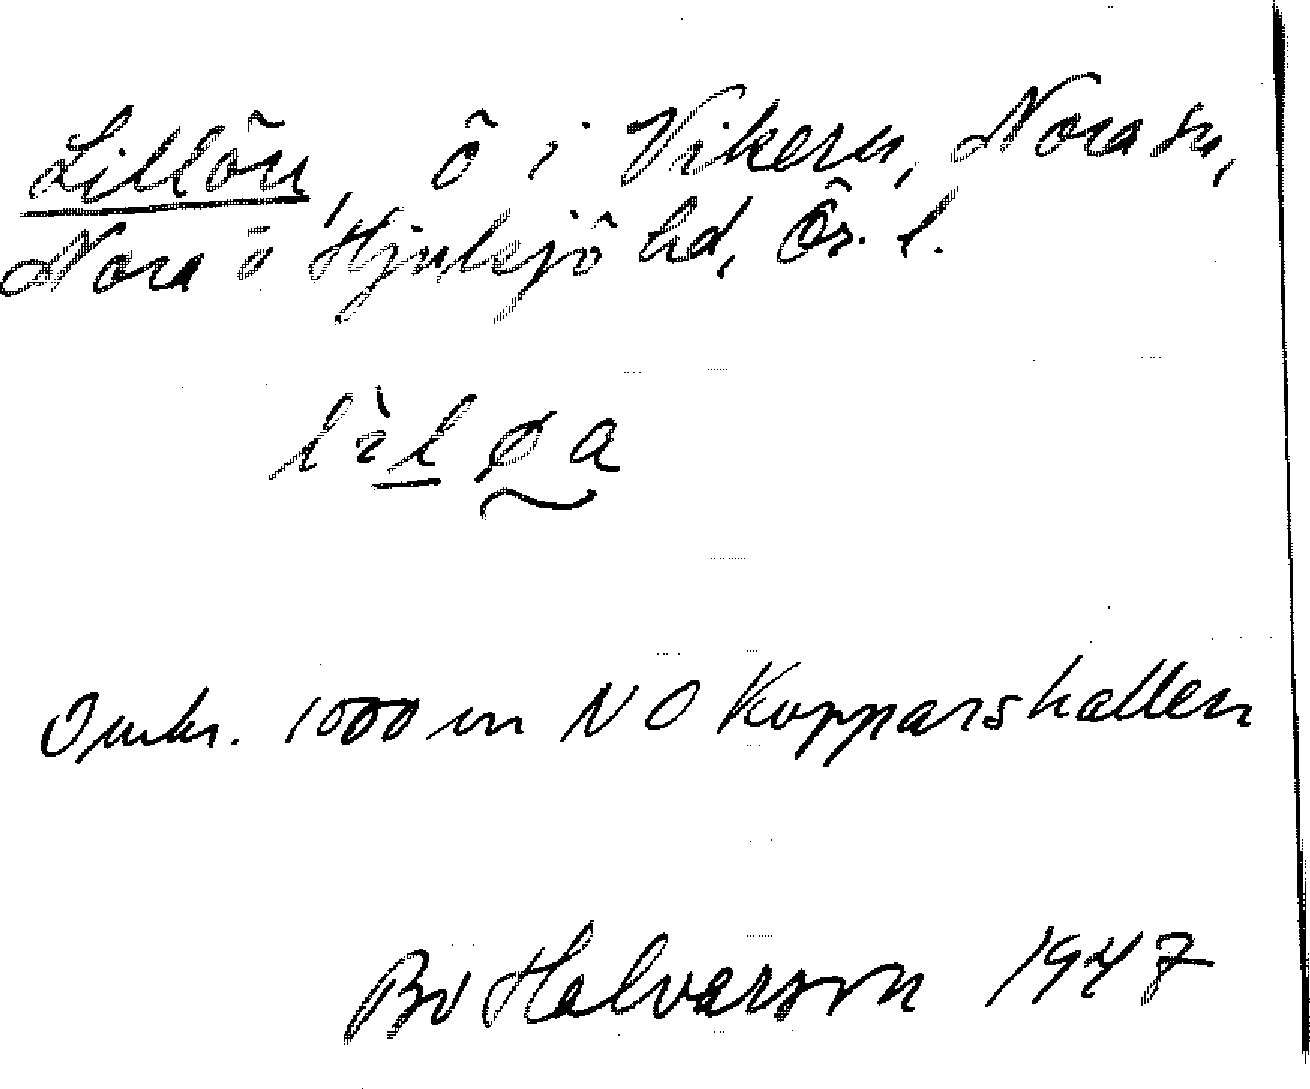 Lillön, ö i Vikern, Nora sn,
Nora o Hjulsjö hd, Ör. l.
Omkr. 1000 m NO Kopparshallen
Bo Halvarson 1947